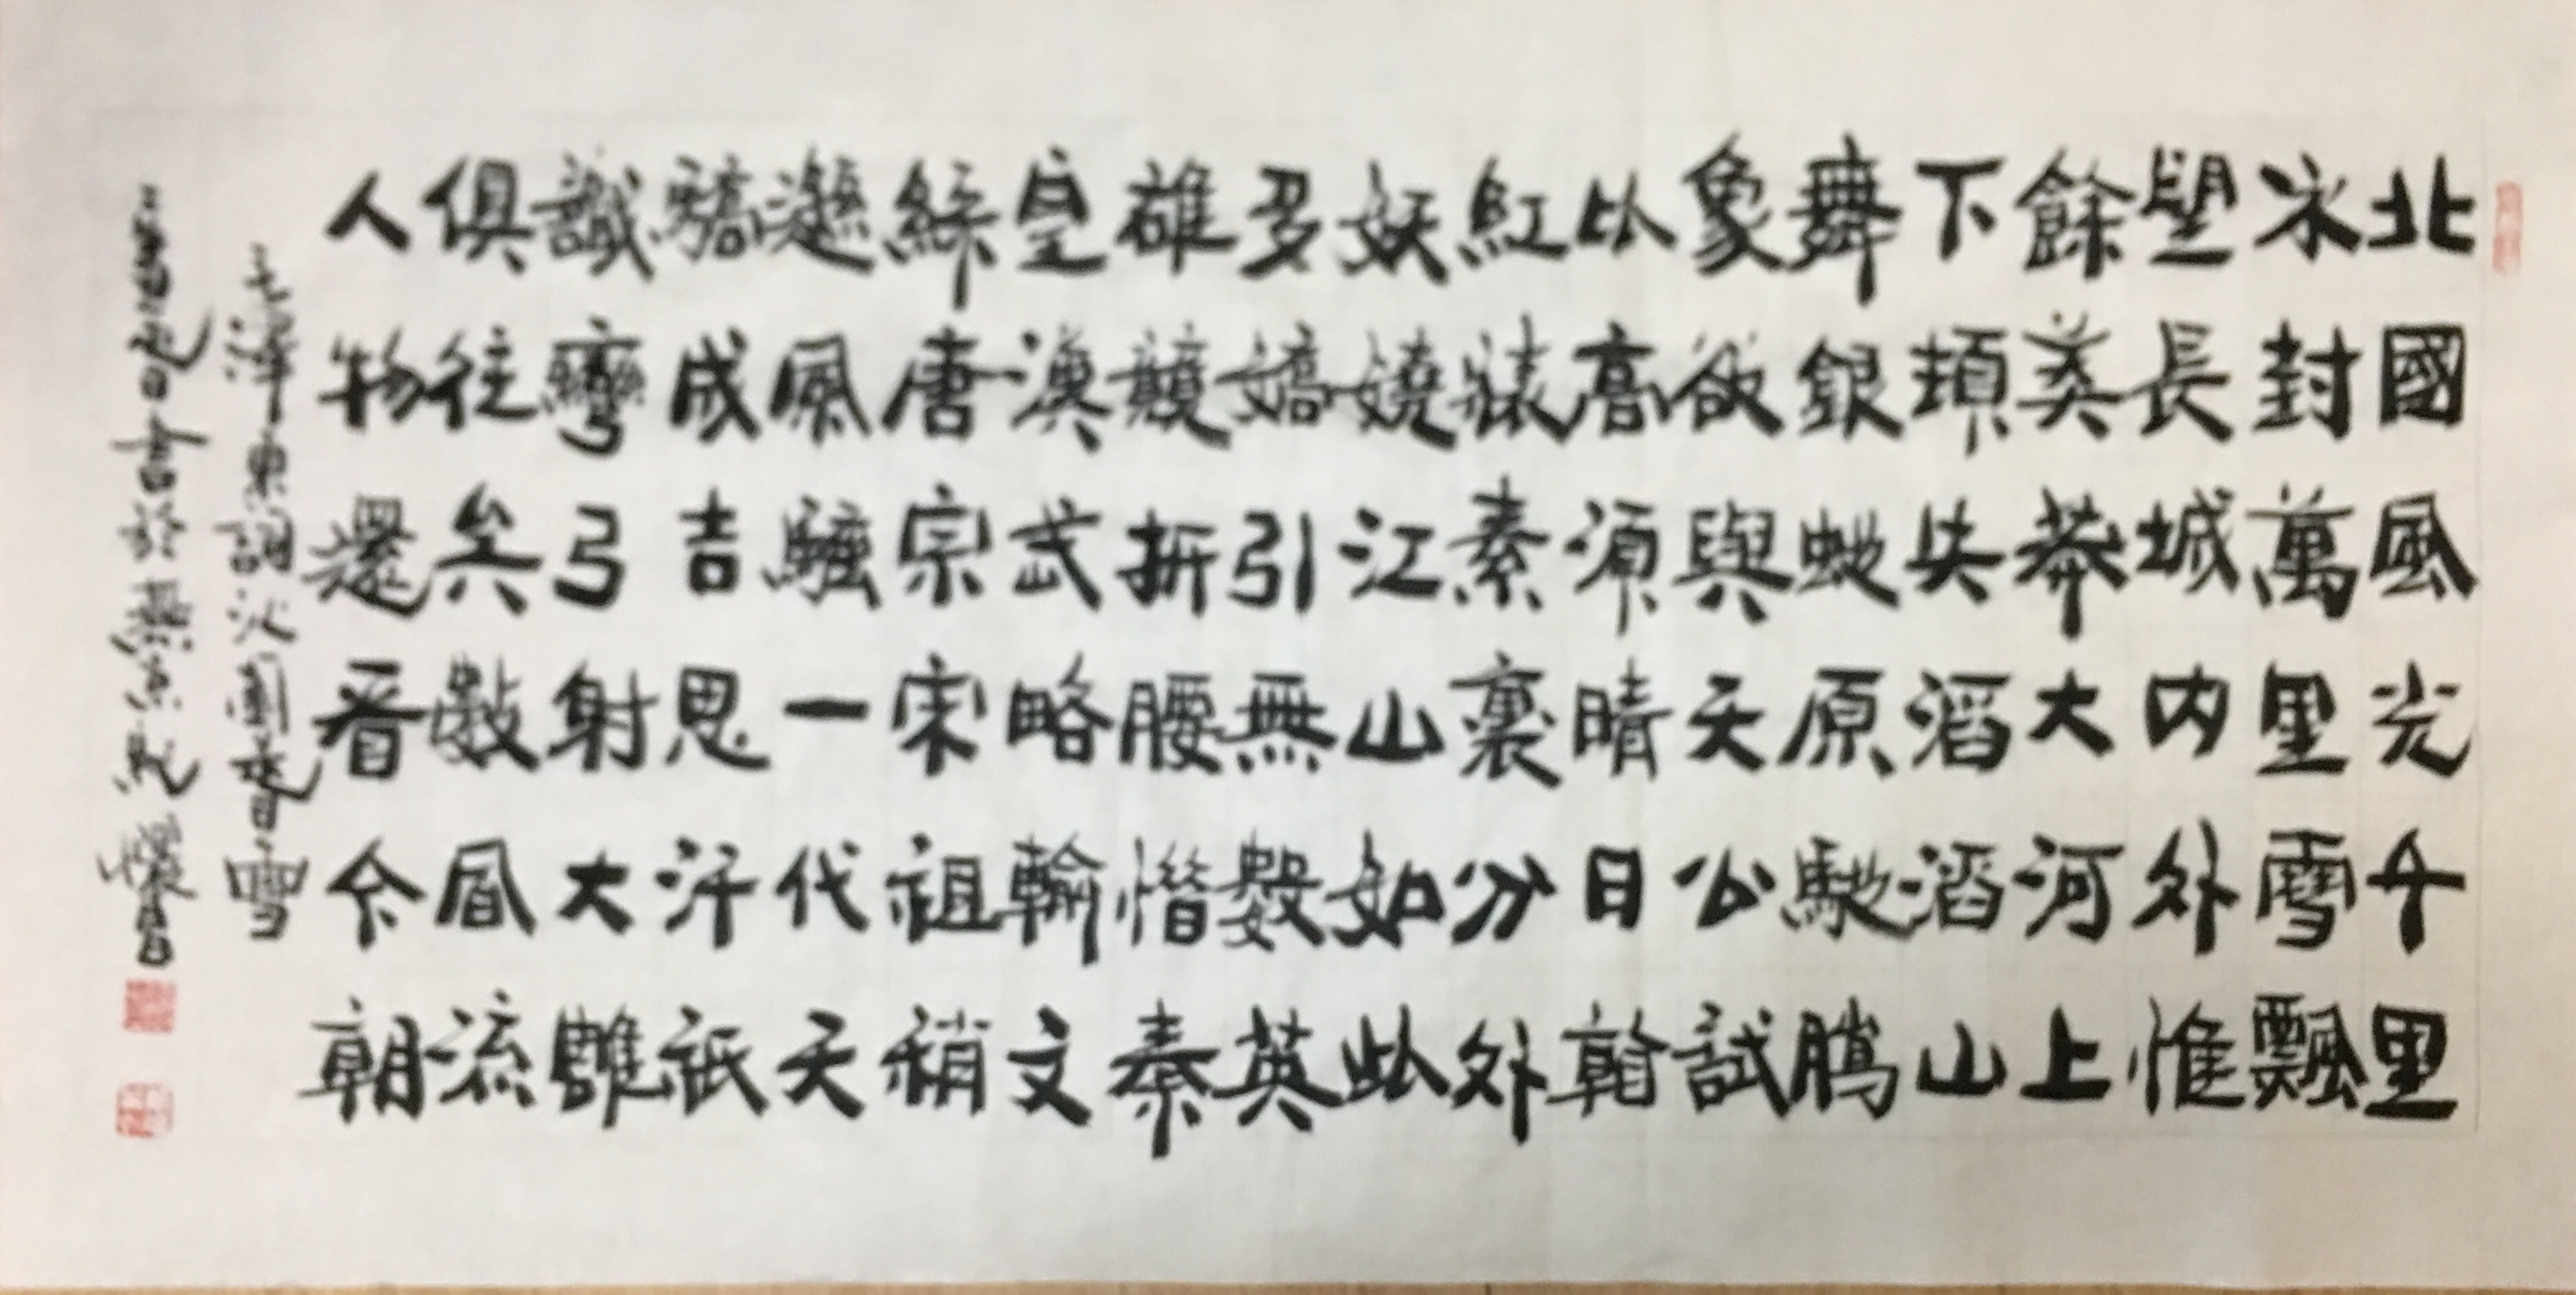 北國風光千里
冰封萬里雪飄
望長城內外惟
餘莽莽大河上
下頓失滔滔山
舞銀蛇原馳臘
象欲與天公試
比高須晴日看
紅裝素裹分外
妖嬈江山如此
多嬌引無數英
雄競折腰惜秦
皇漢武略輸文
綵唐宗宋祖稍
遜風騷一代天
驕成吉思汗祇
識彎弓射大雕
俱往矣數風流
人物還看今朝
毛澤東詞沁園春雪
書於